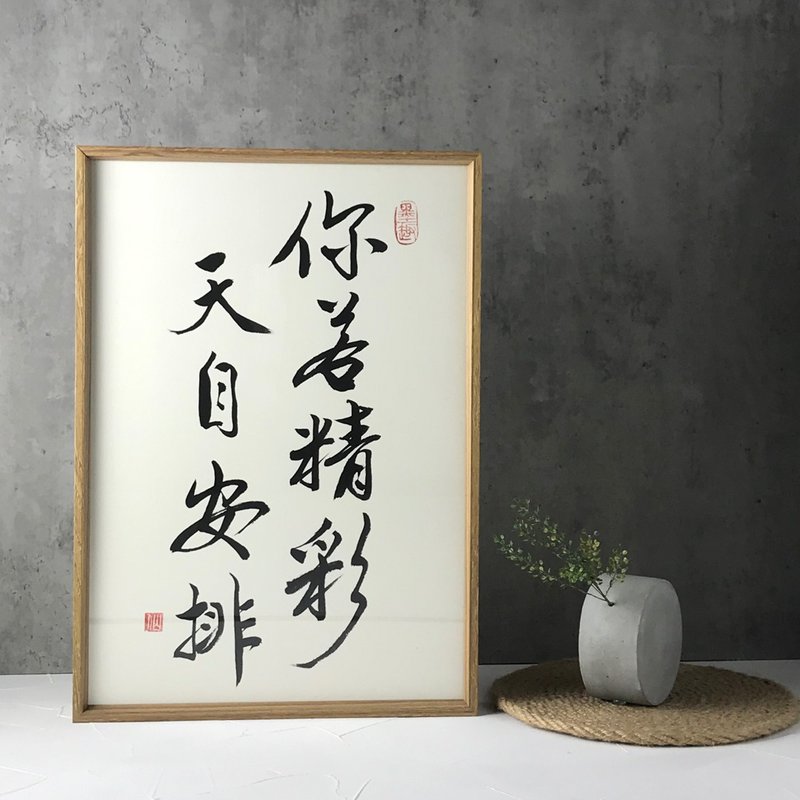 你若精彩
天自安排